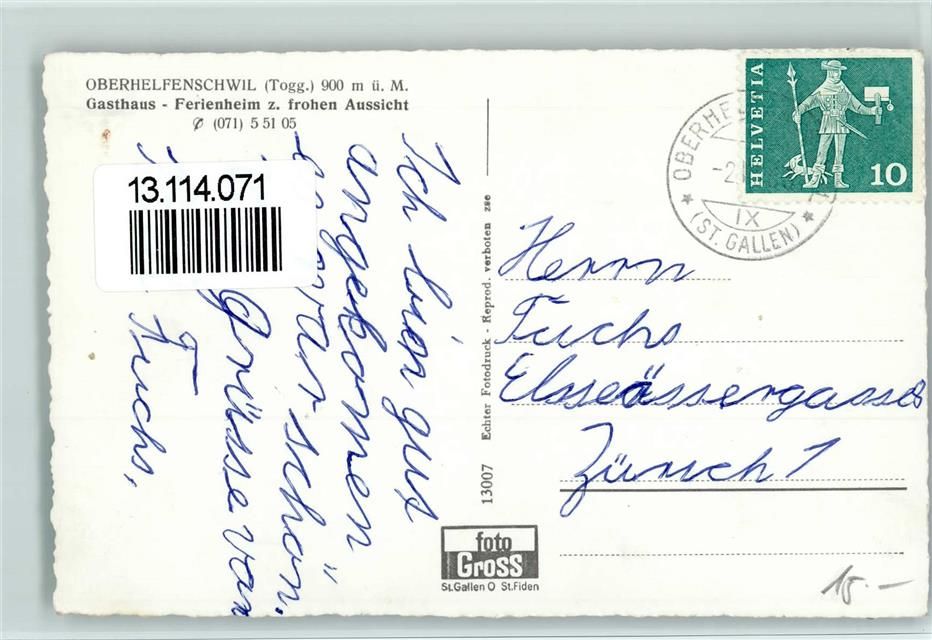 OBERHELFENSCHWIL (Togg.) 900 m ü. M.
Gasthaus - Ferienheim z. frohen Aussicht
✆ (071) 5 51 05
13.114.071
Ich bin gut
angekommen
war schön.
Grüsse von
Fuchs,
13007 Echter Fotodruck - Reprod. verboten zse
HELVETIA
10
OBERHE
-2.
IX
(ST. GALLEN)
Herrn
Fuchs
Elsseässergasse 8
Zürich 1
foto
Gross
St.Gallen O St.Fiden
15.-